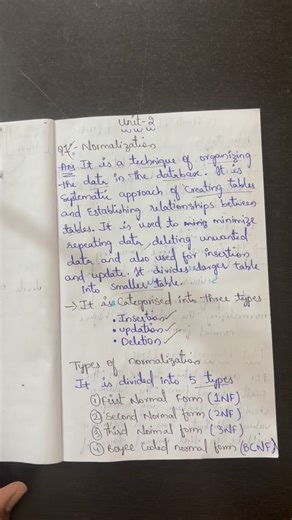 Unit-2
Q1:- Normalization
Ans It is a technique of organizing
the data in the database. It is
Systematic approach of creating tables
and Establishing relationships between
tables. It is used to minimize
repeating data, deleting unwanted
data and also used for insertion
and update. It divides larger table
into smaller table.
→ It is Categorised into three types
• Insertion
• updation
• Deletion
Types of normalization
It is divided into 5 types
① First Normal Form (1NF)
② Second Normal form (2NF)
③ Third Normal form (3NF)
④ Boyee Coded normal form (BCNF)